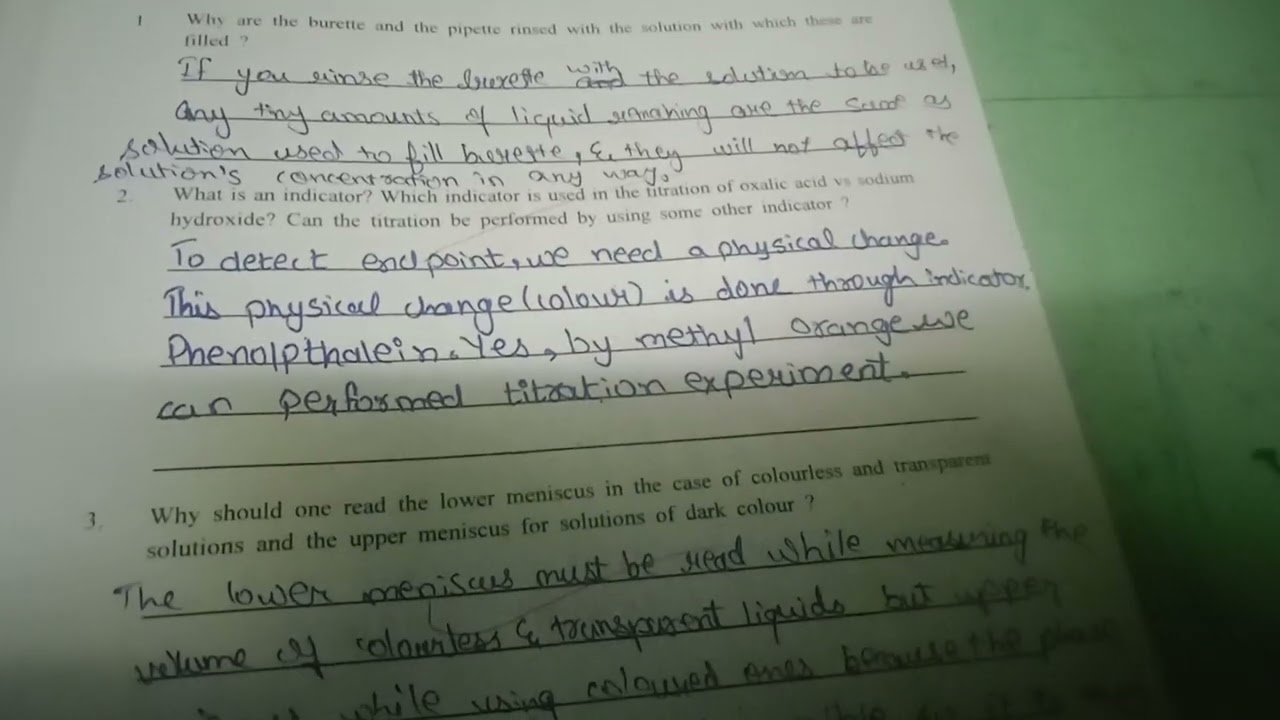 1 Why are the burette and the pipette rinsed with the solution with which these are
filled ?
If you rinse the burette with and the solution to be used,
any tiny amounts of liquid remaining are the same as
solution used to fill burette, & they will not affect the
solution's concentration in any way.
2. What is an indicator? Which indicator is used in the titration of oxalic acid vs sodium
hydroxide? Can the titration be performed by using some other indicator ?
To detect end point, we need a physical change.
This physical change (colour) is done through indicator.
Phenolpthalein. Yes, by methyl orange we
can performed titration experiment.
3. Why should one read the lower meniscus in the case of colourless and transparent
solutions and the upper meniscus for solutions of dark colour ?
The lower meniscus must be read while measuring the
volume of colourless & transparent liquids but upper
while using coloured ones because the